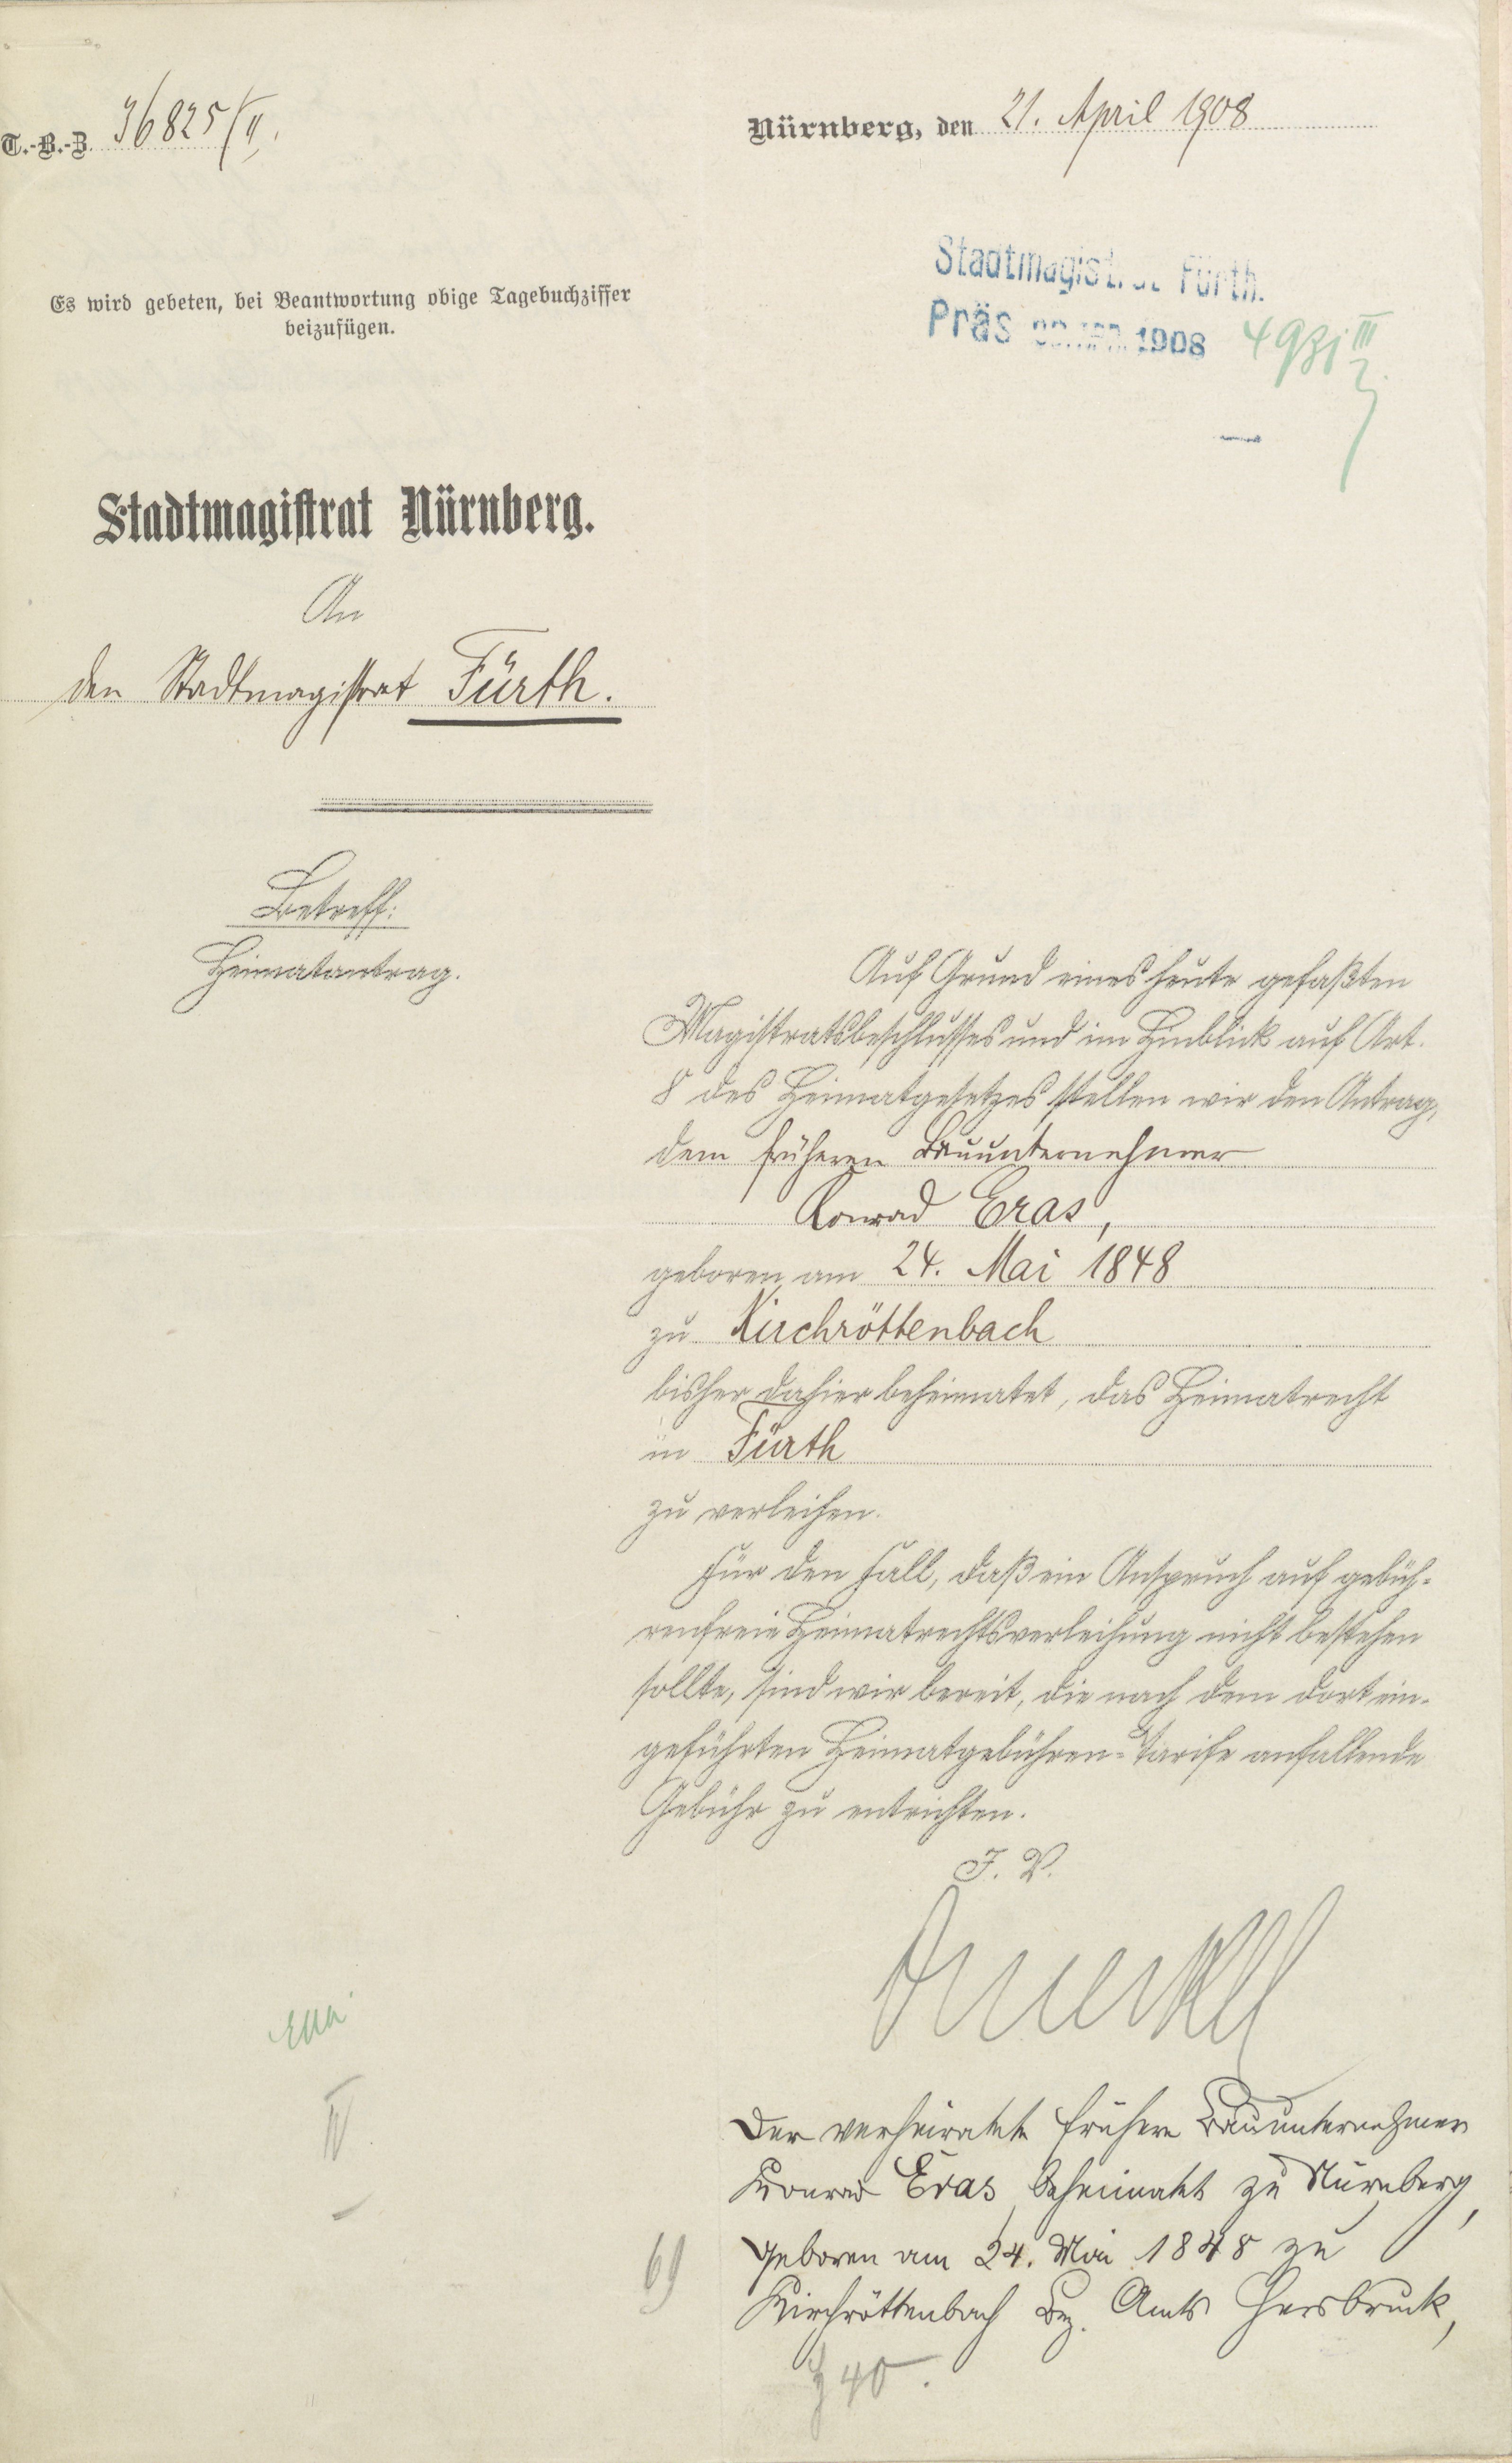 T.-B.-Z. 36825/II.
Nürnberg, den 21. April 1908
Es wird gebeten, bei Beantwortung obige Tagebuchziffer
beizufügen.
Stadtmagistrat Fürth.
Präs 1908
Stadtmagistrat Nürnberg.
An
den Stadtmagistrat Fürth.
Betreff:
Heimatantrag.
Auf Grund eines heute gefaßten
Magistratsbeschlusses und im Hinblick auf Art.
8 des Heimatgesetzes stellen wir den Antrag,
dem früheren Bauunternehmer
Konrad Eras,
geboren am 24. Mai 1848
zu Kirchröttenbach
bisher dahier beheimatet, das Heimatrecht
in Fürth
zu verleihen.
Für den Fall, daß ein Anspruch auf gebüh-
renfreie Heimatrechtsverleihung nicht bestehen
sollte, sind wir bereit, die nach dem dort ein-
geführten Heimatgebühren-Tarife anfallende
Gebühr zu entrichten.
J. V.
IV
Der verheiratete frühere Bauunternehmer
Konrad Eras beheimatet zu Nürnberg,
geboren am 24. Mai 1848 zu
Kirchröttenbach Bez. Amts Hersbruck,
69
40.